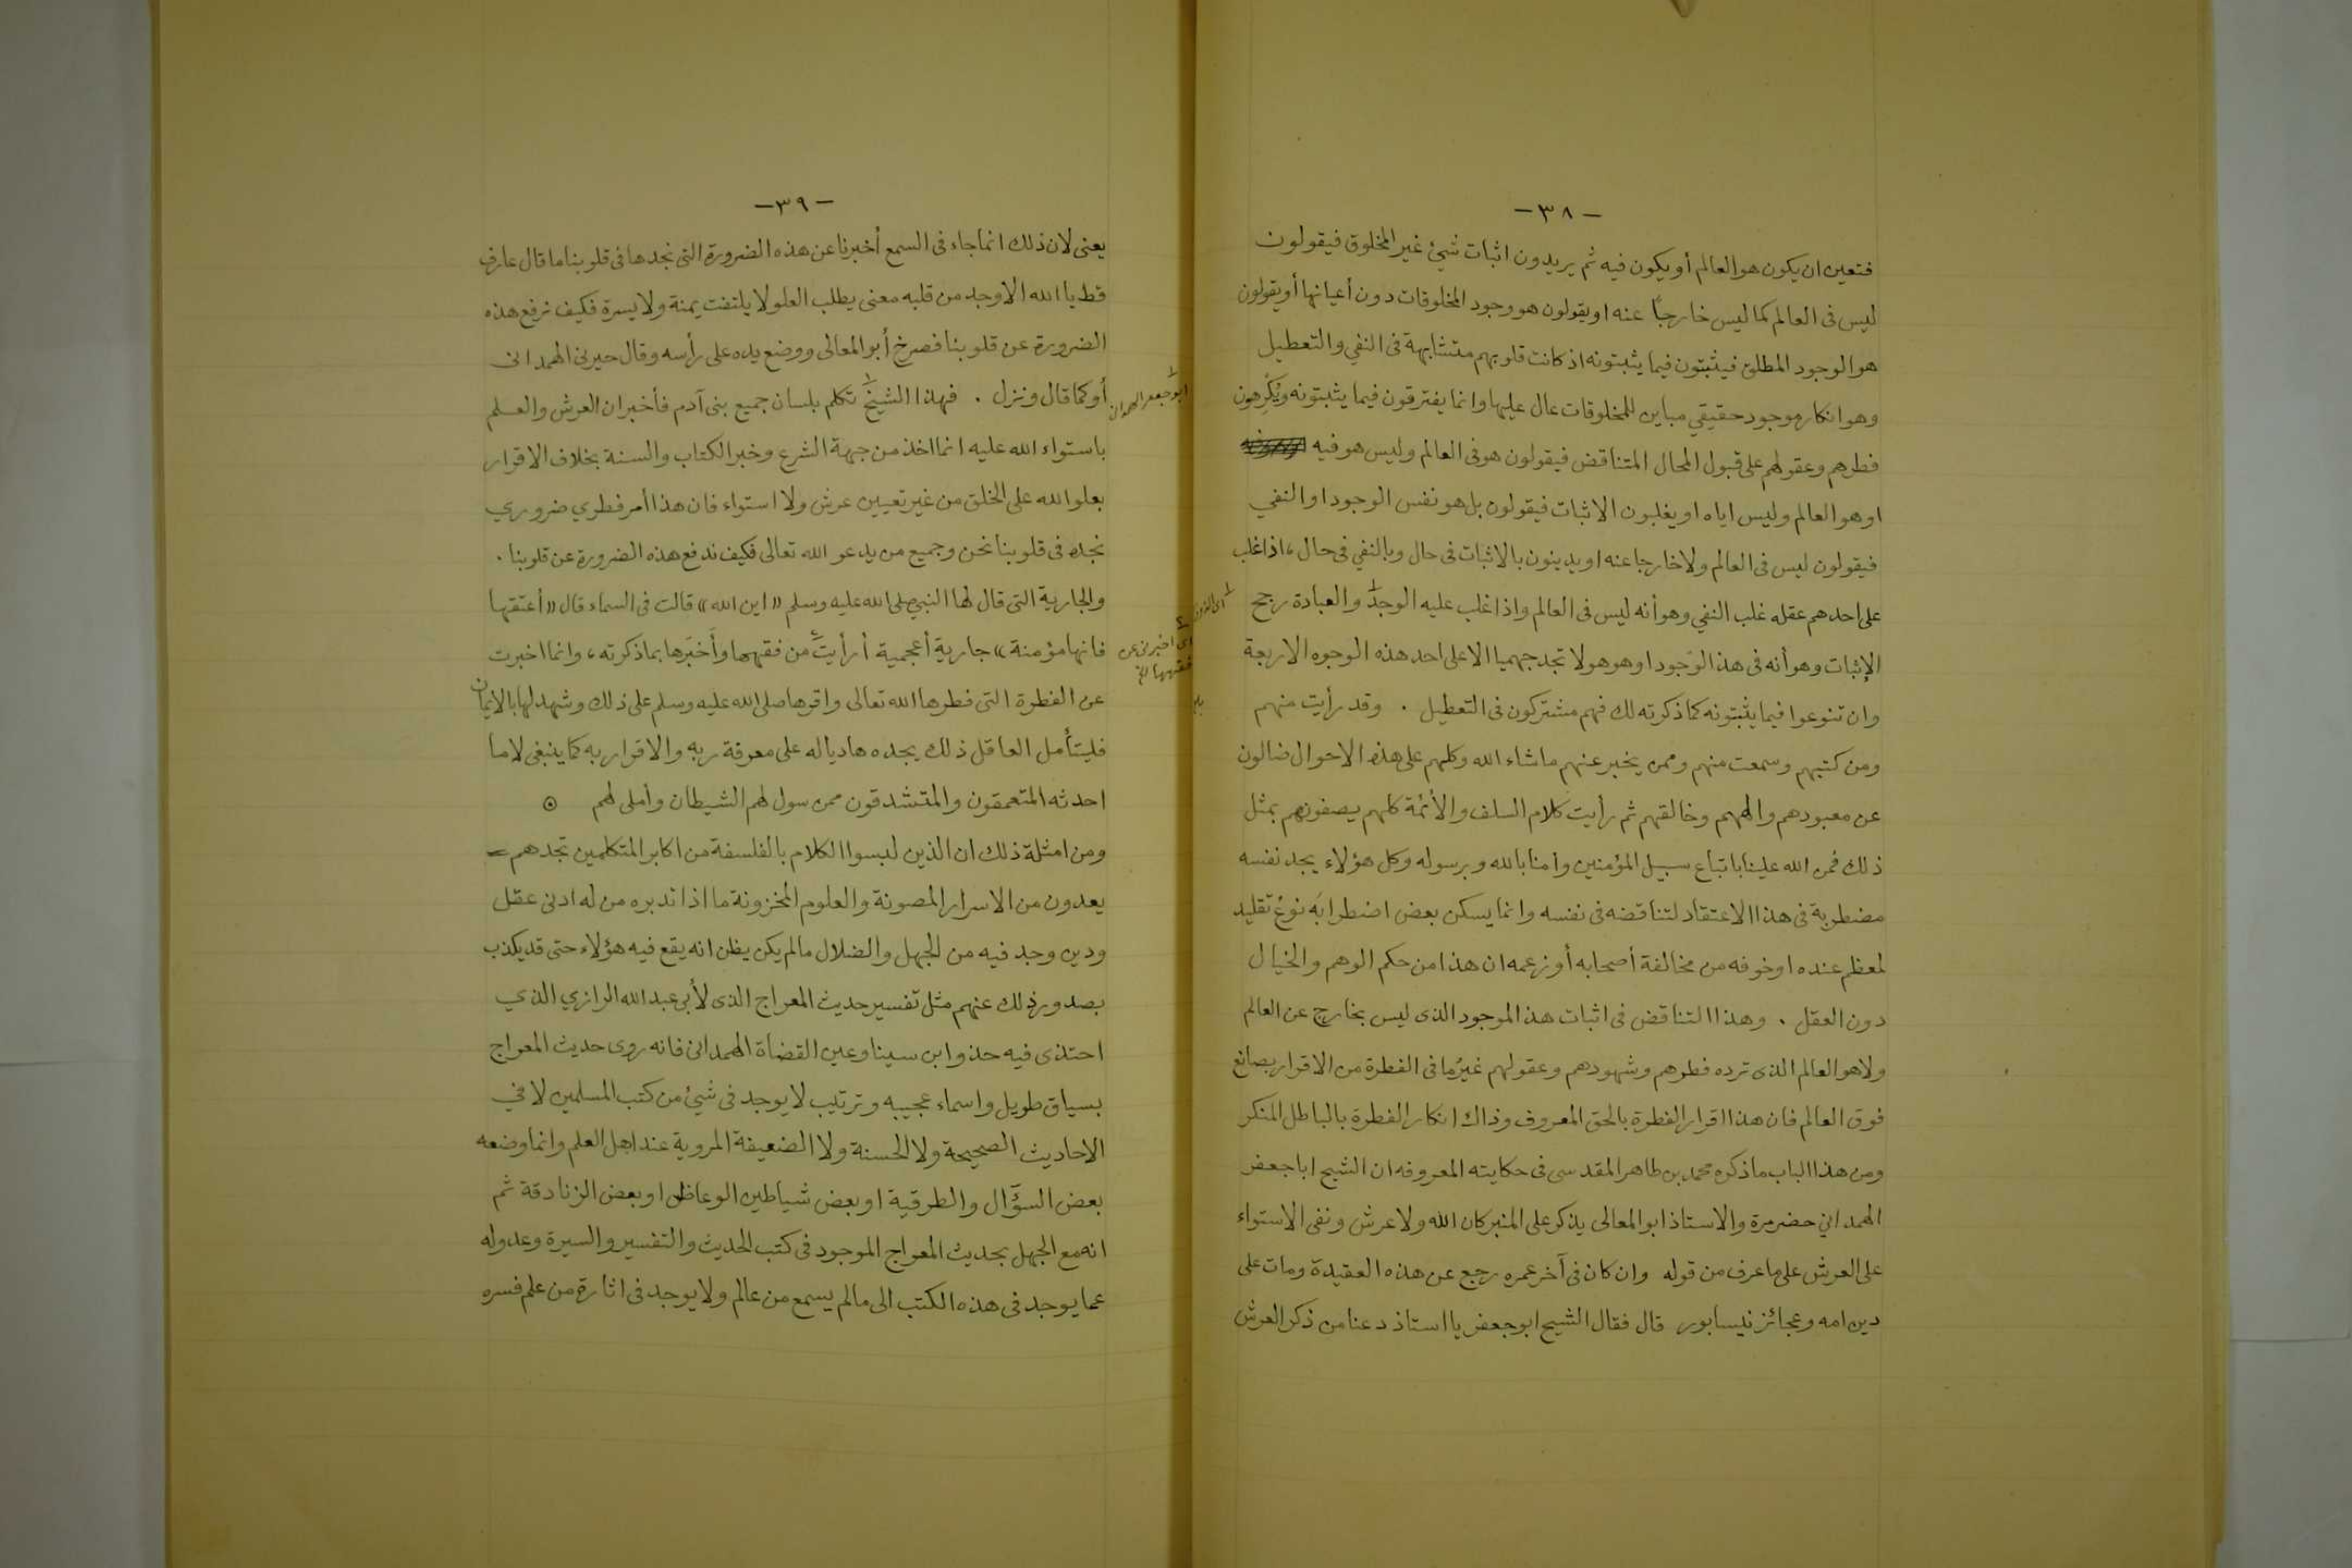 -٣٨-
فتعين ان يكون هو العالم أو يكون فيه ثم يريدون اثبات شيئ غير المخلوق فيقولون
ليس فى العالم كما ليس خارجًا عنه او يقولون هو وجود المخلوقات دون أعيانها أو يقولون
هو الوجود المطلق فيثبتون فيما يثبتونه اذ كانت قلوبهم متشابهة فى النفي والتعطيل
وهو انكار موجود حقيقي مباين للمخلوقات عال عليها وانما يفترقون فيما يثبتونه ويُكْرِهون
فطرهم وعقولهم على قبول المحال المتناقض فيقولون هو فى العالم وليس هو فيه
او هو العالم وليس اياه او يغلبون الاثبات فيقولون بل هو نفس الوجود او النفي
فيقولون ليس فى العالم ولا خارجا عنه او يدينون بالاثبات فى حال وبالنفي فى حال ، اذا غلب
على احدهم عقله غلب النفي وهو أنه ليس فى العالم واذا غلب عليه الوجدُ١ والعبادة رجح
الإثبات وهو أنه فى هذا الوجود او هو هو لا تجد جهميا الا على احد هذه الوجوه الاربعة
وان تنوعوا فيما يثبتونه كما ذكرته لك فهم مشتركون فى التعطيل . وقد رأيت منهم
ومن كتبهم وسمعت منهم وممن يخبر عنهم ماشاء الله وكلهم على هذه الاحوال ضالون
عن معبودهم والههم وخالقهم ثم رأيت كلام السلف والأئمة كلهم يصفونهم بمثل
ذلك فمن الله علينا باتباع سبيل المؤمنين وامنا بالله وبرسوله وكل هؤلاء يجد نفسه
مضطربة فى هذا الاعتقاد لتناقضه فى نفسه وانما يسكن بعض اضطرابَه نوعُ تقليد
لمعظم عنده او خوفه من مخالفة أصحابه أو زعمه ان هذا من حكم الوهم والخيال
دون العقل . وهذا التناقض فى اثبات هذا الموجود الذى ليس بخارج عن العالم
ولا هو العالم الذى ترده فطرهم وشهودهم وعقولهم غيرُ ما فى الفطرة من الاقرار بصانع
فوق العالم فان هذا اقرار الفطرة بالحق المعروف وذاك انكار الفطرة بالباطل المنكر
ومن هذا الباب ما ذكره محمد بن طاهر المقدسى فى حكايته المعروفه ان الشيخ ابا جعفر
الهمداني حضر مرة والاستاذ ابو المعالى يذكر على المنبر كان الله ولا عرش ونفى الاستواء
على العرش على ما عرف من قوله وان كان فى آخر عمره رجع عن هذه العقيدة ومات على
دين امه وعجائز نيسابور قال فقال الشيخ ابو جعفر يا استاذ دعنا من ذكر العرش
-٣٩-
يعنى لان ذلك انما جاء فى السمع أخبرنا عن هذه الضرورة التى نجدها فى قلوبنا ما قال عارف
قط يا الله الا وجد من قلبه معنى يطلب العلو لا يلتفت يمنة ولا يسرة فكيف نرفع هذه
الضرورة عن قلوبنا فصرخ أبو المعالى ووضع يده على رأسه وقال حيرنى الهمدانى
أو كما قال ونزل . فهذا الشيخ١ تكلم بلسان جميع بنى آدم فأخبر ان العرش والعلم
باستواء الله عليه انما اخذ من جهة الشرع وخبر الكتاب والسنة بخلاف الاقرار
بعلو الله على الخلق من غير تعيين عرش ولا استواء فان هذا أمر فطري ضروري
نجده فى قلوبنا نحن وجميع من يدعو الله تعالى فكيف ندفع هذه الضرورة عن قلوبنا .
والجارية التى قال لها النبي صلى الله عليه وسلم «اين الله» قالت فى السماء قال «أعتقها
فانها مؤمنة» جارية أعجمية أرأيتَ٤ من فقهها وأَخبَرها بما ذكرته ، وانما اخبرت
عن الفطرة التى فطرها الله تعالى واقرها صلى الله عليه وسلم على ذلك وشهد لها بالايمان
فليتأمل العاقل ذلك يجده هاديا له على معرفة ربه والاقرار به كما ينبغى لا ما
احدثه المتعمقون والمتشدقون ممن سول لهم الشيطان وأملى لهم ⊙
ومن امثلة ذلك ان الذين لبسوا الكلام بالفلسفة من اكابر المتكلمين تجدهم
يعدون من الاسرار المصونة والعلوم المخزونة ما اذا تدبره من له ادنى عقل
ودين وجد فيه من الجهل والضلال مالم يكن يظن انه يقع فيه هؤلاء حتى قد يكذب
بصدور ذلك عنهم مثل تفسير حديث المعراج الذى لأبى عبد الله الرازي الذي
احتذى فيه حذو ابن سينا وعين القضاة الهمدانى فانه روى حديث المعراج
بسياق طويل واسماء عجيبه وترتيب لا يوجد فى شيئ من كتب المسلمين لا في
الاحاديث الصحيحة ولا الحسنة ولا الضعيفة المروية عند اهل العلم وانما وضعه
بعض السؤّال والطرقية او بعض شياطين الوعاظ او بعض الزنادقة ثم
انه مع الجهل بحديث المعراج الموجود فى كتب الحديث والتفسير والسيرة وعدوله
عما يوجد فى هذه الكتب الى مالم يسمع من عالم ولا يوجد فى اثارة من علم فسره
١ ابو جعفر الهمدان
٤ اى اخبرنى عن
فقهها الخ